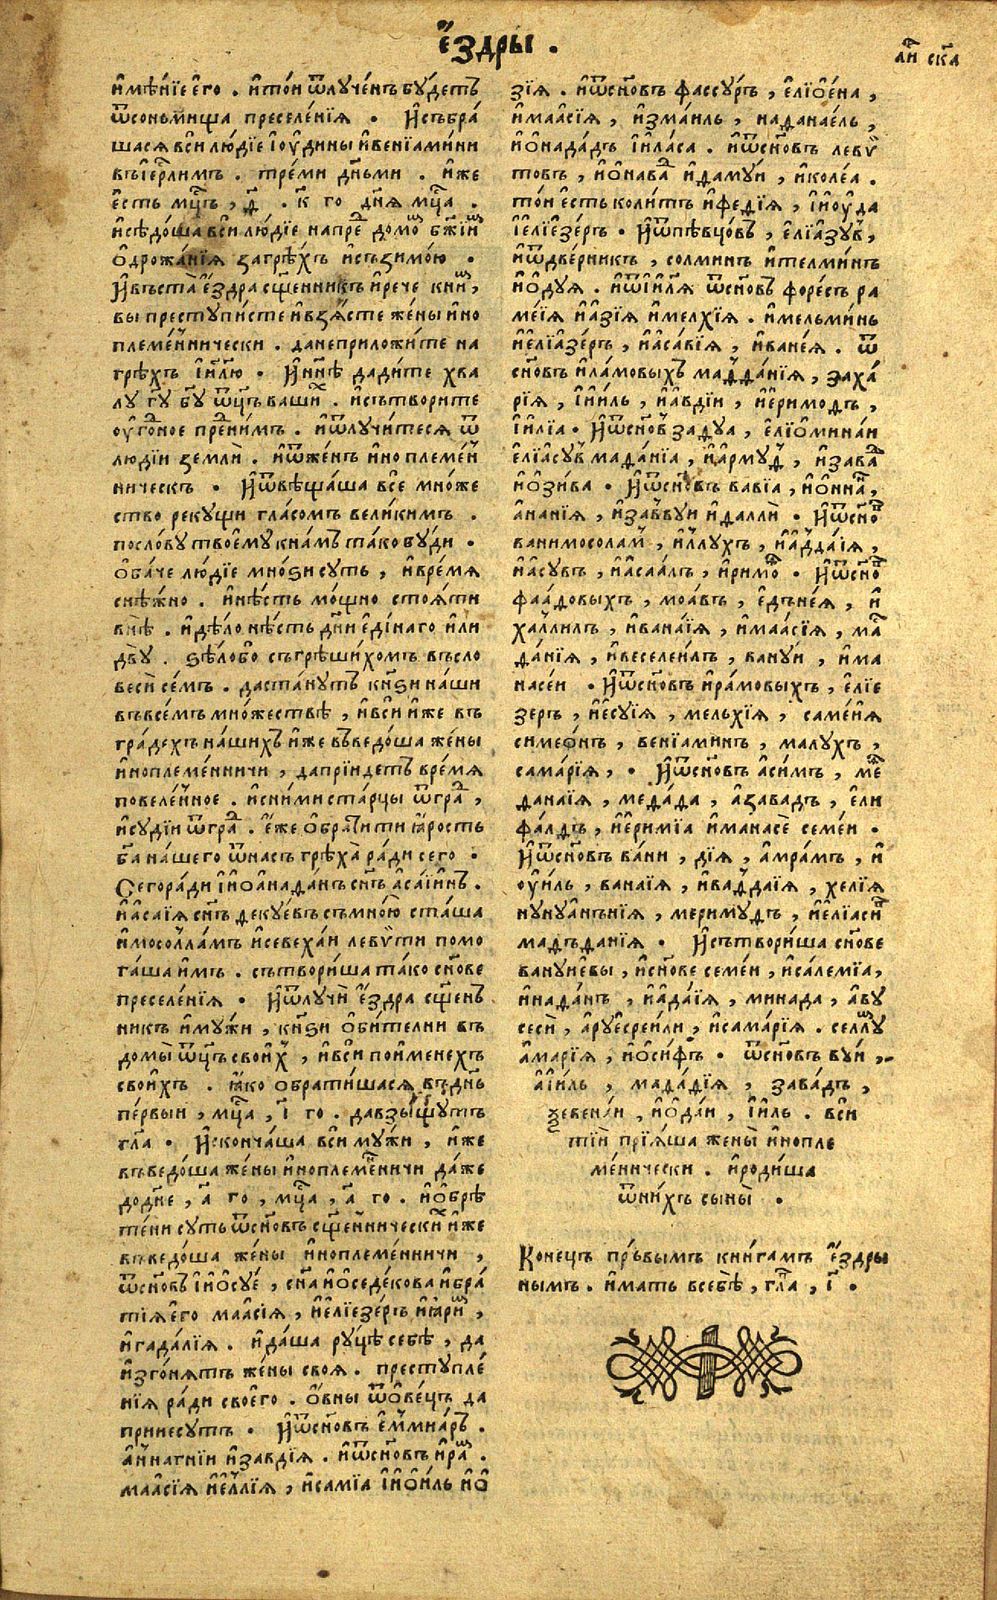 е҆́здры .
имѣ́нїе его̀ . и҆то́и ѿлуче́нъ бу́детъ
ѿсоньмища преселе́нїѧ . И҆събра́
шасѧ вси лю́дїе і҆оу́дины и҆венїами́ни
въіе҆рⷭ҇лимъ . тре́ми дн҃ьми . и҆же
е҆сть мцⷭ҇ъ , д҃ . к҃ го днѧ мцⷭ҇а .
и҆сѣдо́ша вси лю́дїе напреⷣ домоⷨ бж҃їиⷨ
ѻ҆дрожа́нїѧ загрѣ́хъ и҆съзимо́ю .
И҆въста̀ е҆́здра сщ҃е́нникъ и҆рече книⷨ ,
вы преступи́сте и҆взѧ́сте же́ны и҆но
племе́ннически . данеприложи́те на
грѣхъ і҆и҃лю . И҆нн҃ѣ дади́те хва
лу гу҃ бу҃ ѿц҃ъ ва́шиⷯ . и҆сътвори́те
оу҆го́ное преⷣни́мъ . и҆ѿлучи́тесѧ ѿ
люді́и землѝ . и҆ѿже́нъ и҆ноплеме́н
ническъ . И҆ѿвѣща́ша все мно́же
ство реку́щи гла́сомъ вели́кимъ .
посло́ву твоему̀ кна́мъ та́ко бу́ди .
Ѻ҆ба́че лю́дїе мно́ѕи суть , и҆вре́мѧ
снѣ́жно . и҆нѣ́сть мо́щно стоѧ́ти
внѣ̀ . и҆дѣ́ло нѣ́сть дн҃и е҆ди́наго и҆ли
дву̀ . ѕѣ́лобо съгрѣши́хомъ въсло
весѝ се́мъ . даста́нутъ кнѕ҃и на́ши
въвсе́мъ мно́жествѣ , и҆вси и҆же въ
гра́дехъ на́шихъ и҆же въведо́ша же́ны
и҆ноплеме́нничи , дапрїидетъ вре́мѧ
повеле́нное . и҆сни́ми ста́рцы ѿграⷣ ,
и҆суді́и ѿграⷣ . е҆́же ѻ҆брати́ти ꙗ҆́рость
ба҃ на́шего ѿна́съ грѣха̀ ра́ди сего .
Сего́ради і҆ѻ҆анада́нъ сн҃ъ а҆саи҆́инъ .
и҆а҆саї́ѧ сн҃ъ декуе́въ съмно́ю ста́ша
и҆мосолла́мъ и҆севеха́и левѵ́ти помо
га́ша и҆мъ . сътвори́ша та́ко сн҃ове
преселе́нїѧ . И҆ѿлучѝ е҆́здра сщ҃ен
никъ и҆му́жи , кнѕ҃и ѻ҆би́телнии въ
домы̀ ѿц҃ъ свои́хъ , и҆вси поименехъ
свои́хъ . ꙗ҆́ко ѻ҆брати́шасѧ въдн҃ь
пе́рвыи , мцⷭ҇а , і҃ го . давзы́щутъ
гла҃ . И҆сконча́ша вси му́жи , и҆же
въведо́ша же́ны и҆ноплеме́нничи да́же
додн҃е , а҃ го , мцⷭ҇а , а҃ го . и҆ѻ҆брѣ
те́ни суть ѿсн҃о́въ сщ҃е́нническиⷯ и҆же
въведо́ша жены̀ и҆ноплеме́нничи ,
ѿсн҃о́въ і҆и҆ѻ҆суе́ , сн҃а и҆ѻ҆седе́кова и҆бра́
тїѧ е҆го̀ маа҆сі́ѧ , и҆е҆лїезе́ръ и҆ꙗ҆риⷨ ,
и҆гада́лїѧ . и҆да́ша ру́цѣ себѣ̀ , да
и҆згонѧ́тъ же́ны своѧ . преступле́
нїѧ ра́ди своего̀ . ѻ҆́вны ѿѻ҆ве́цъ да
принесу́тъ . И҆ѿсн҃о́въ е҆ммиа́ръ .
а҆на́нии и҆завді́ѧ . и҆ѿсн҃о́въ и҆раⷨ .
маа҆сі́ѧ и҆е҆ллі́ѧ , и҆самі́а і҆и҆ѻ҆́иль и҆ѻ҆
зі́ѧ . и҆ѿсн҃о́въ фассу́ръ , е҆лїѻ҆е́на ,
и҆маа҆сі́ѧ , и҆зма́иль , наданае́ль ,
и҆ѻ҆нада́дъ и҆ила́са . и҆ѿсн҃о́въ левѵ
товъ , и҆ѻ҆наваⷣ и҆даму́и , и҆коле́а .
то́и е҆сть коли́тъ и҆феді́ѧ , і҆и҆оу҆да
і҆е҆лїезе́ръ . И҆ѿпѣвцо́въ , е҆лїазу́въ ,
и҆ѿдве́рникъ , солминъ и҆телми́нъ
и҆ѻ҆дуѧ . и҆ѿі҆и҃лѧ ѿсн҃о́въ форе́съ ра
ме́їѧ и҆а҆зі́ѧ и҆мелхі́ѧ . и҆мельми́нь
и҆е҆лїазе́ръ , и҆а҆са́вїѧ , и҆ване́ѧ . ѿ
сн҃о́въ и҆ла́мовыхъ мадда́нїѧ , заха́
рїѧ , і҆и҆ль , и҆а҆вді́и , и҆е҆римо́дъ ,
і҆и҆лі́а . И҆ѿсн҃о́въ задуа , е҆лїѻ҆мина́и
е҆лїасу́въ мада́нїа , и҆а҆рму́дъ , и҆заваⷣ
и҆ѻ҆зи́ва . И҆ѿсн҃о́въ вавї́а , и҆ѻ҆ннаⷩ ,
а҆нанї́ѧ , и҆заббуи и҆даллѝ . И҆ѿсн҃оⷡ
ванимосола́м , и҆ллу́хъ , и҆а҆дда́їѧ ,
и҆а҆су́въ , и҆а҆саа́лъ , и҆римоⷴ . И҆ѿсн҃оⷡ
фаа́довыхъ , моа́въ , е҆дъне́ѧ , и҆
халли́лъ , и҆вана́їѧ , и҆маа҆сі́ѧ , маⷴ
да́нїѧ , и҆веселеи́лъ , вану́и , и҆ма
насе́и . И҆ѿсн҃о́въ и҆ра́мовыхъ , е҆лїе
зеръ , и҆е҆суі́ѧ , мельхі́ѧ , саме́їѧ
симео́нъ , венїами́нъ , малу́хъ ,
сама́рїѧ , . И҆ѿсн҃о́въ а҆си́мъ , меⷴ
дана́їѧ , меда́да , а҆завадъ , е҆ли
фа́лдъ , и҆е҆римі́а и҆манасѐ семе́и .
И҆ѿсн҃о́въ ва́ни , ді́ѧ , а҆мра́мъ , и҆
оу҆и́ль , вана́їѧ , и҆вадда́їѧ , хелі́ѧ
нуну́анънїѧ , мериму́дъ , и҆е҆лїасиⷡ
мадъданїѧ . И҆сътвори́ша сн҃ове
вануи҆е́вы , и҆сн҃ове семе́и , и҆са́лемїа ,
и҆нада́нъ , и҆а҆да́їѧ , минада , а҆ву
сесѝ , а҆руе҆сре́или , и҆сама́рїѧ . селлуⷨ
а҆марїѧ , и҆ѻ҆сифъ . ѿсн҃о́въ вуи́ ,
а҆и҆́иль , мада́дїѧ , зава́дъ ,
зевени́и , и҆ѻ҆даи , і҆и҆ль . вси
ті́и прїѧ́ша жены̀ и҆нопле
ме́ннически . и҆роди́ша
ѿни́хъ сыны̀ .
Коне́цъ пръ́вымъ кни́гамъ е҆́здры
нымъ . и҆мать всебѣ̀ , гла҃ , і҃ .